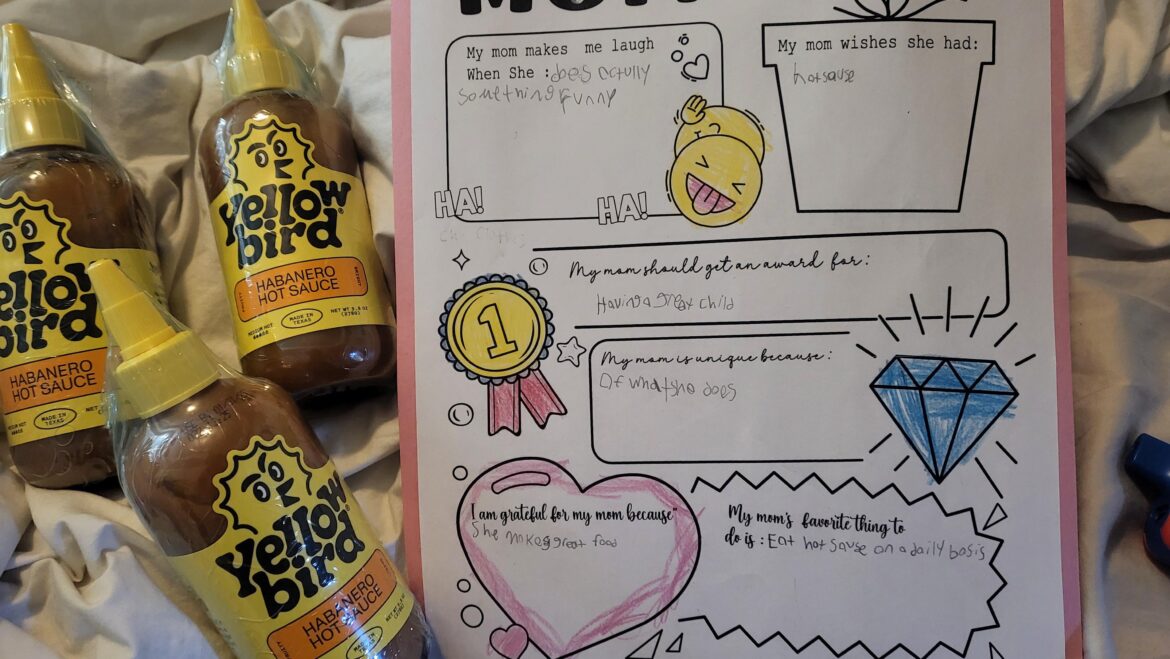 MOM
My mom makes me laugh
When She : does actully
something funny
HA!
HA!
My mom wishes she had:
hotsause
My mom should get an award for:
Having a great child
1
My mom is unique because:
Of what she does
I am grateful for my mom because"
She makes great food
My mom's favorite thing to
do is : Eat hot sause on a daily basis
Yellow
bird
HABANERO
HOT SAUCE
MADE IN
TEXAS
Yellow
bird
HABANERO
HOT SAUCE
MEDIUM HOT
MADE IN
TEXAS
NET WT 9.8 OZ
(278G)
Yellow
bird
HABANERO
HOT SAUCE